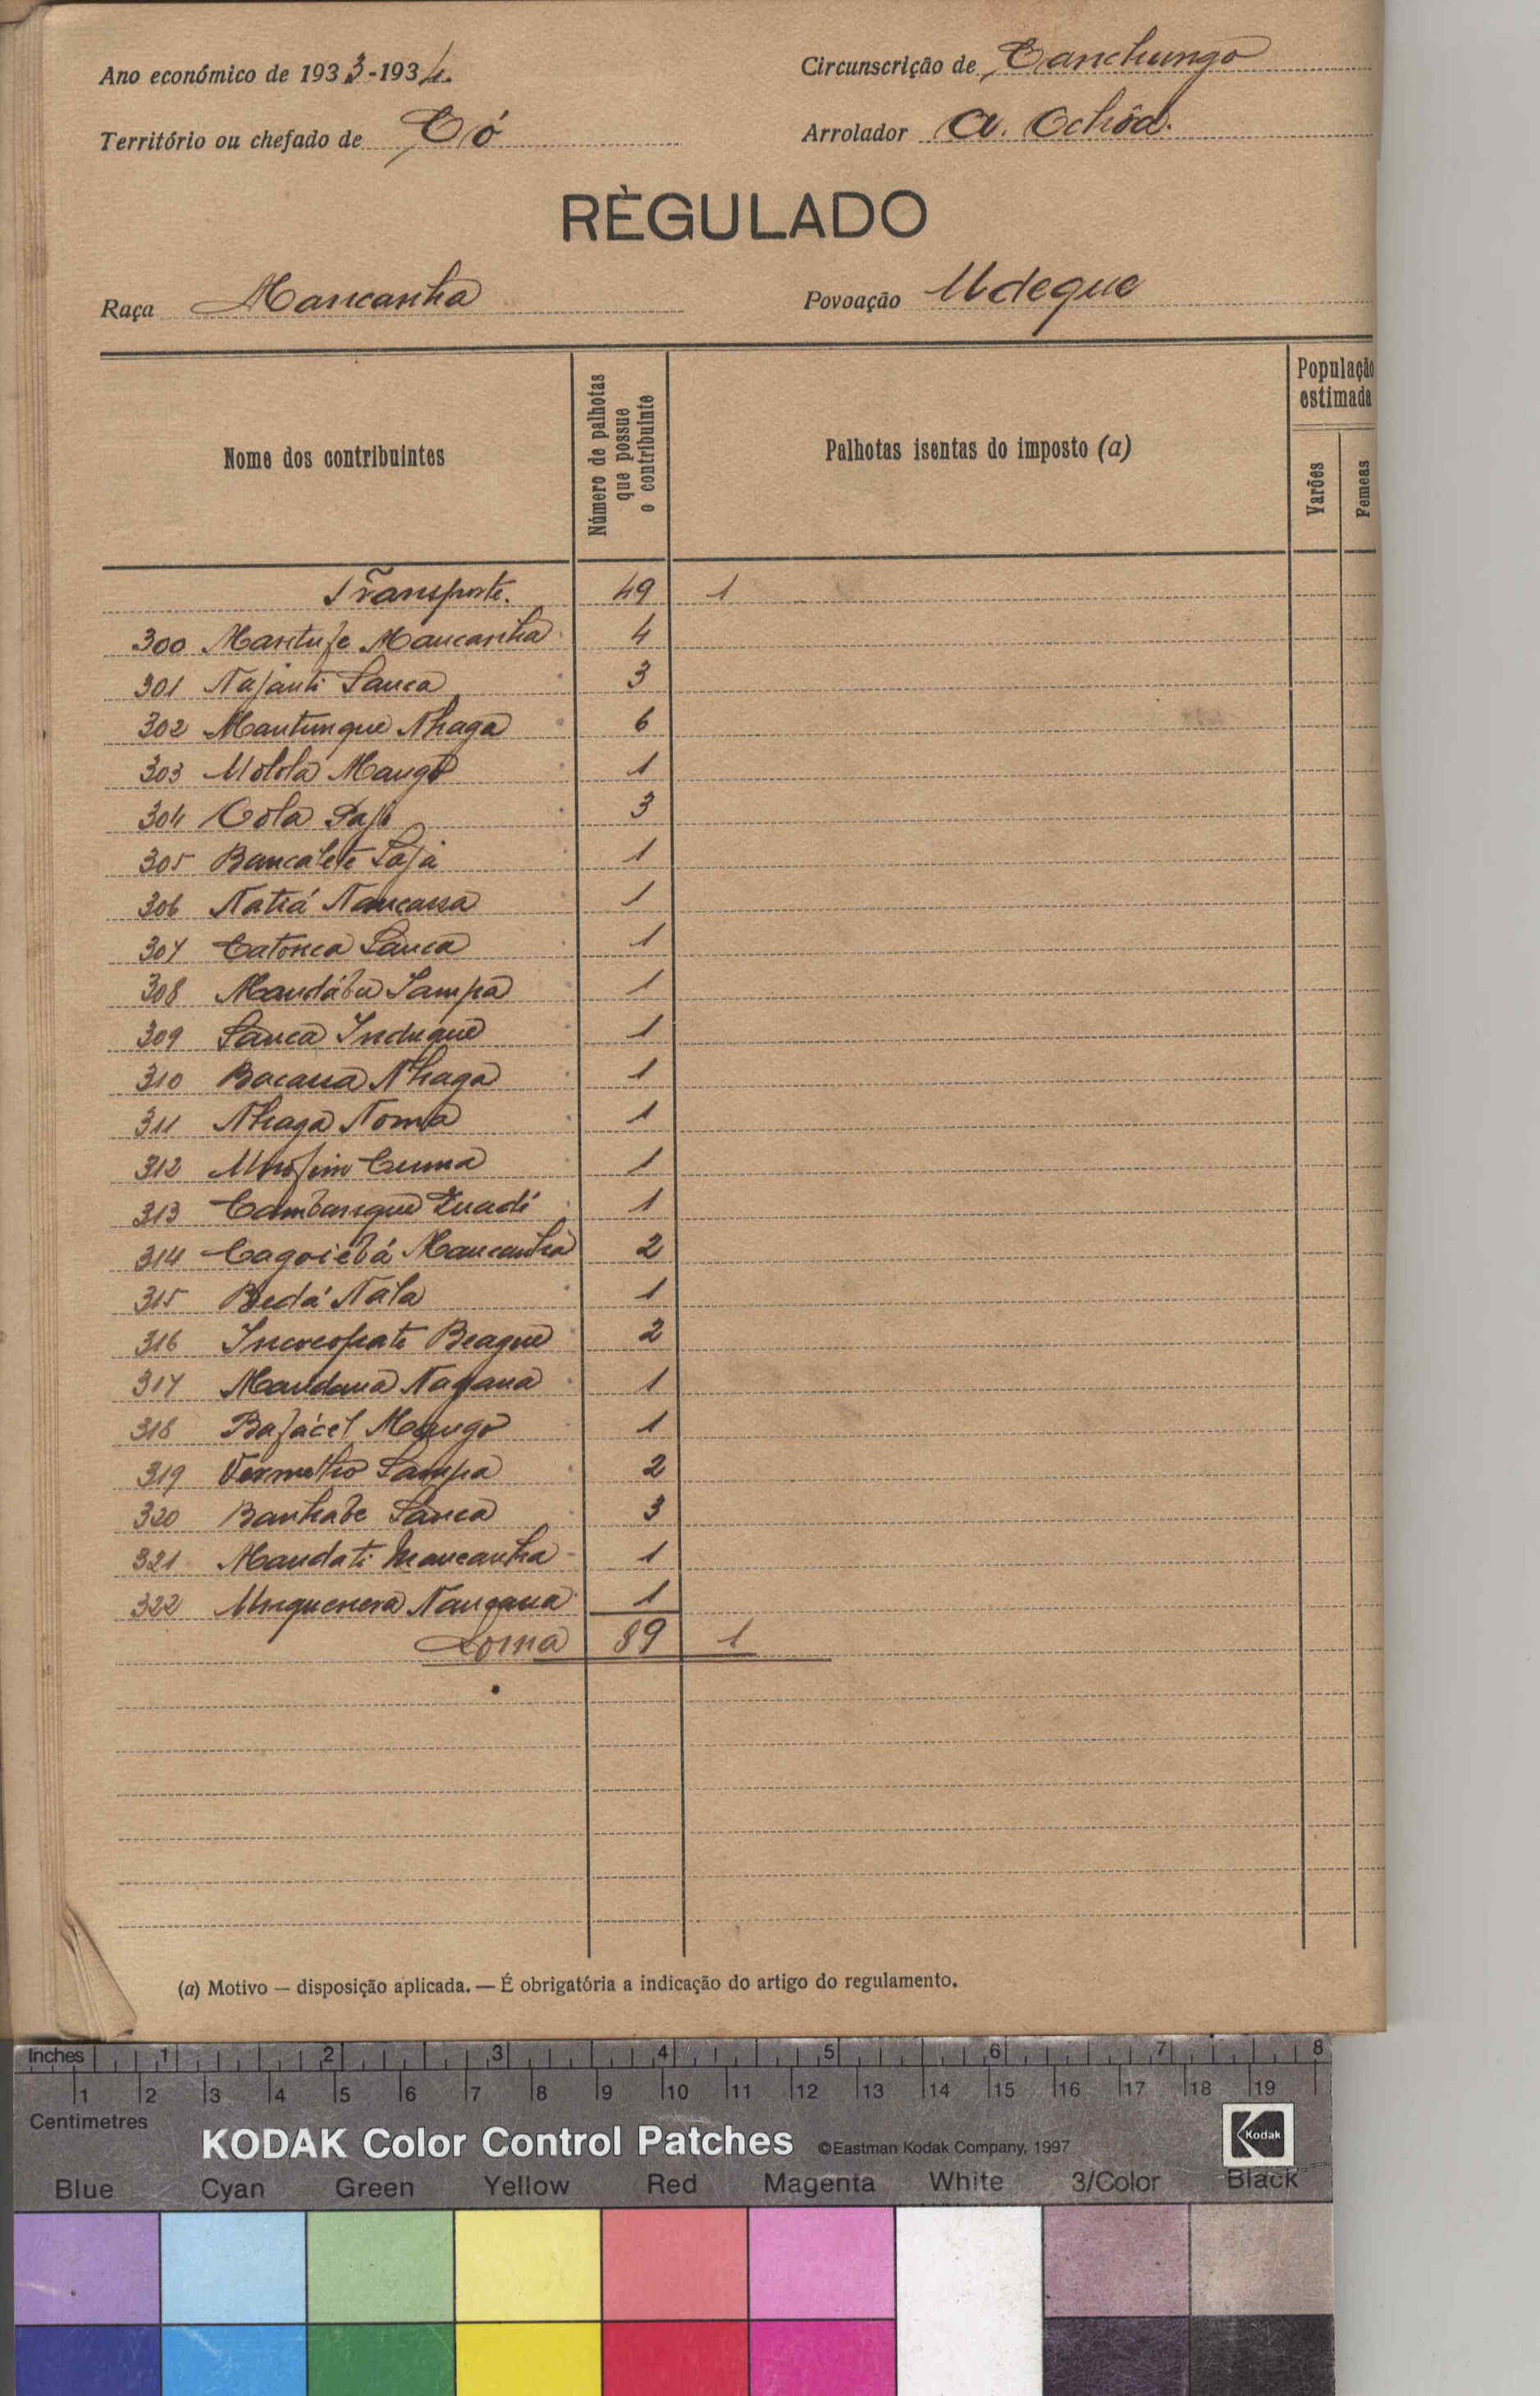 Ano económico de 1933-1934
Circunscrição de Canchungo
Território ou chefado de Có
Arrolador A. Ochôa.
RÈGULADO
Raça Mancanha
Povoação Udeque
Nome dos contribuintes
Número de palhotas que possue o contribuinte
Palhotas isentas do imposto (a)
População estimada
Varões
Femeas
Transporte. 49 1
300 Mantufe Mancanha 4
301 Najanti Sanca 3
302 Mantunque Nhaga 6
303 Molola Mango 1
304 Cola 3
305 Bancalete 1
306 Natiá Nancassa 1
307 Catonca Sanca 1
308 Mandábu Sampa 1
309 Sanca Induque 1
310 Bacana Nhaga 1
311 Nhaga Noma 1
312 Cuma 1
313 Cambanque Zuadi 1
314 Cagoiebá Mancanha 2
315 Bedá Nala 1
316 Beague 2
317 Mandana Nagana 1
318 Bafácel Mango 1
319 Vermelho Sampa 2
320 Banhabe Sanca 3
321 Mandati Mancanha 1
322 Nangana 1
Soma 89 1
(a) Motivo — disposição aplicada. — É obrigatória a indicação do artigo do regulamento.
Inches 1 2 3 4 5 6 7 8
1 2 3 4 5 6 7 8 9 10 11 12 13 14 15 16 17 18 19
Centimetres
KODAK Color Control Patches ©Eastman Kodak Company, 1997 Kodak
Blue Cyan Green Yellow Red Magenta White 3/Color Black